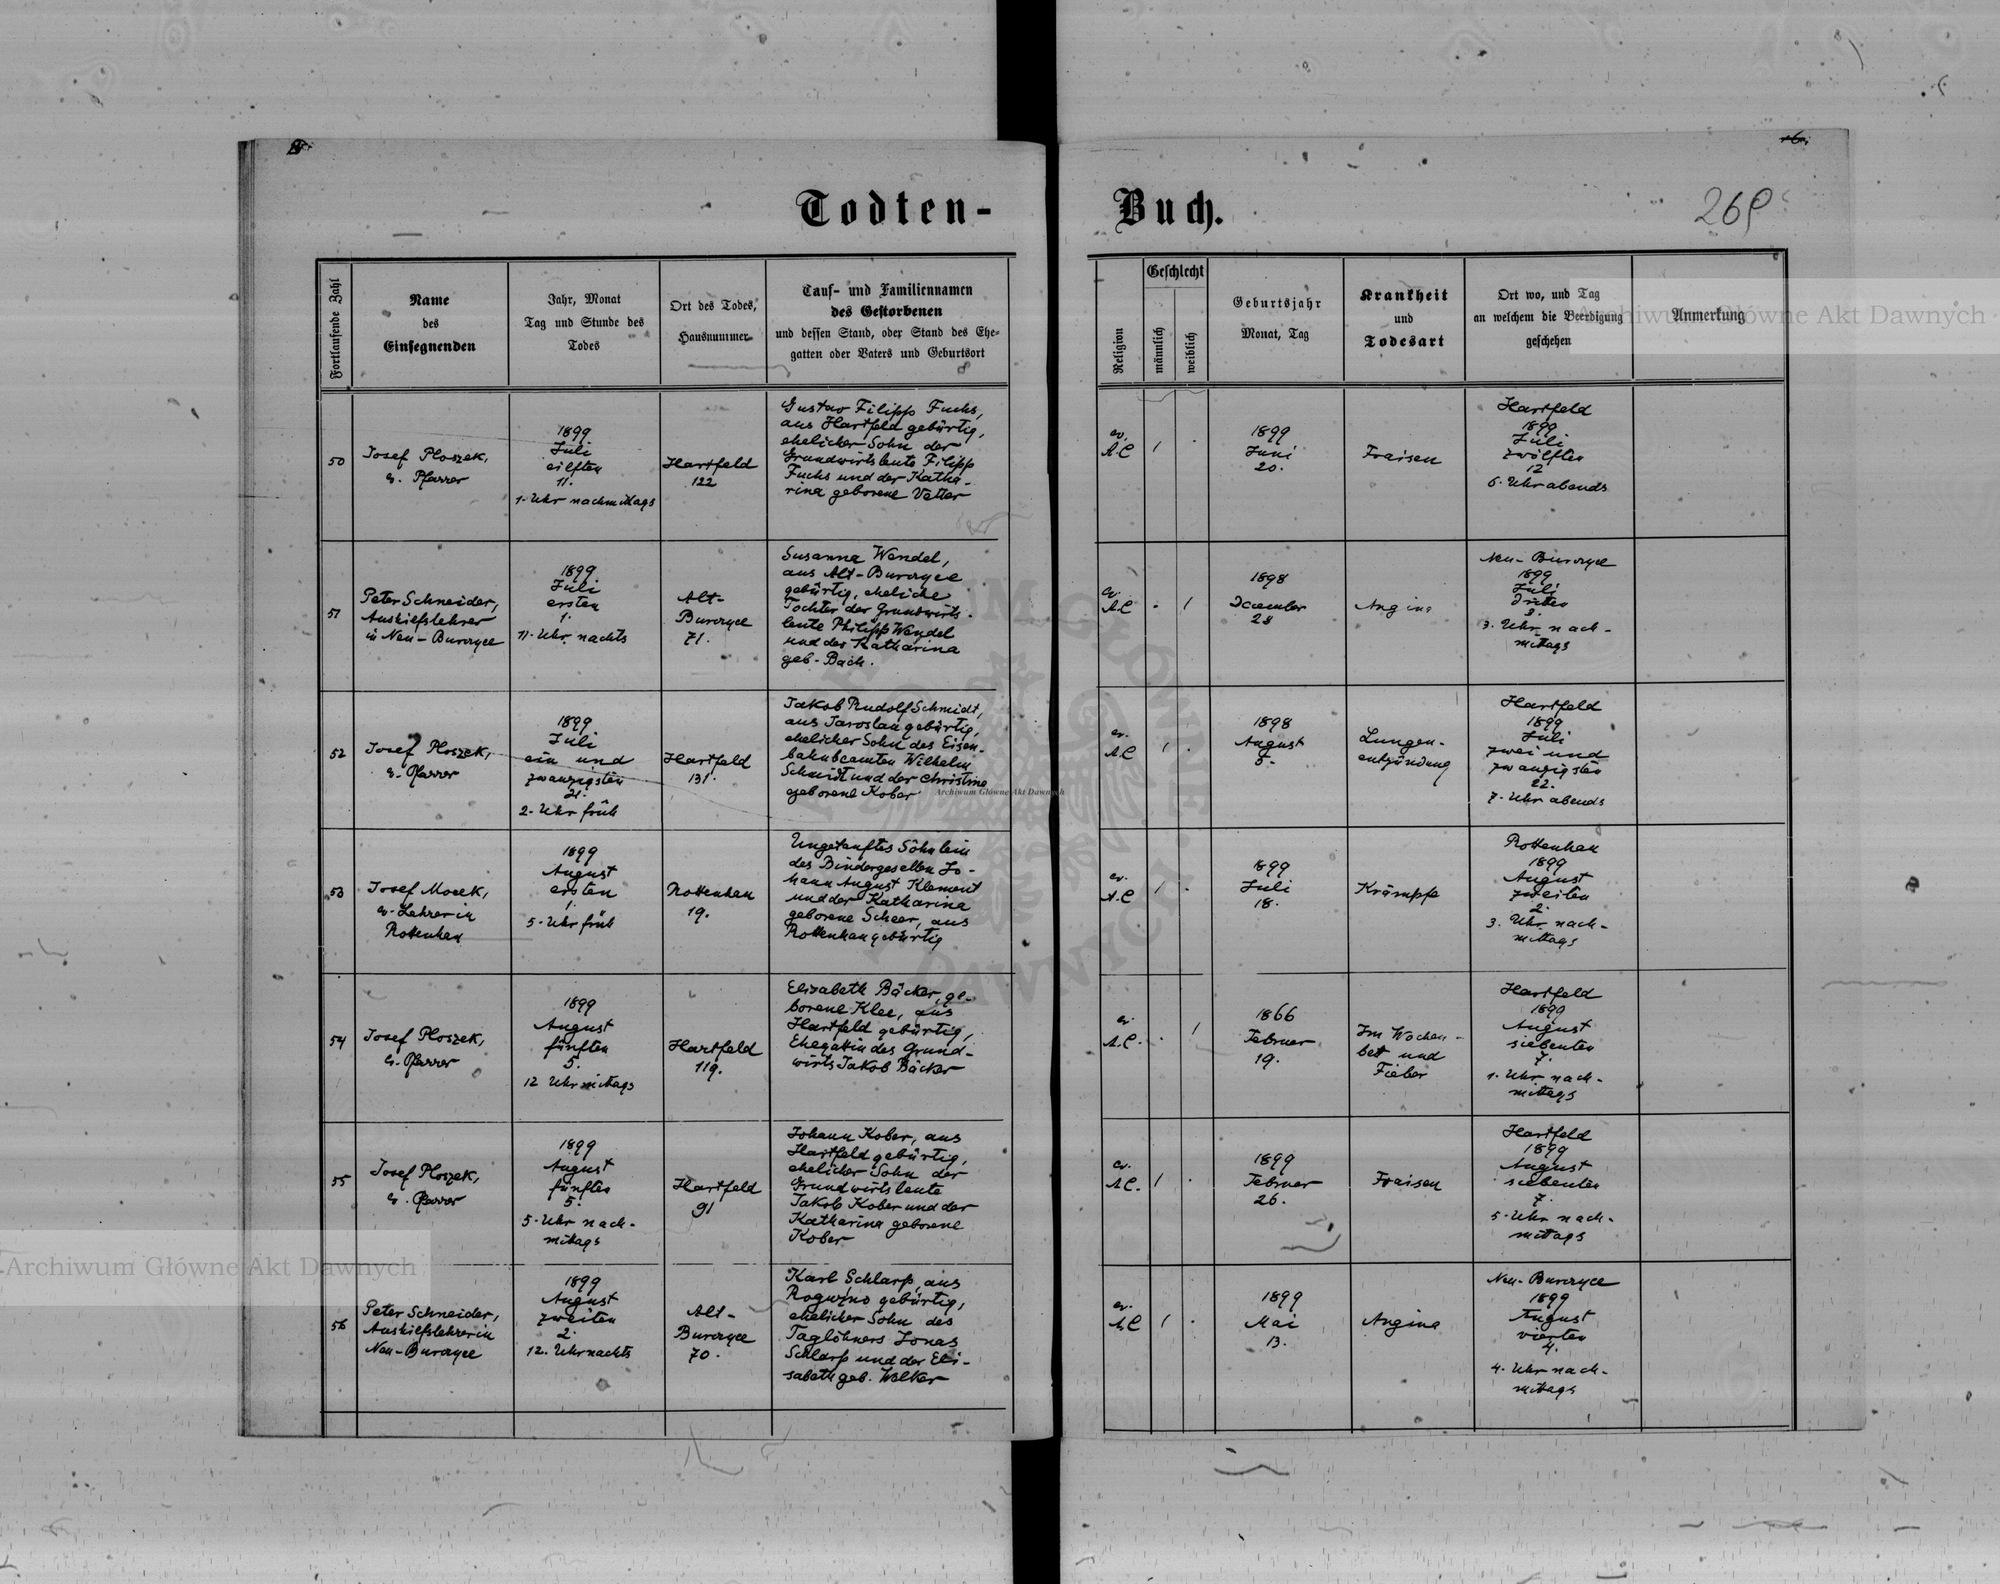 Todten-
Buch.
269
Fortlaufende Zahl
Name
des
Einsegnenden
Jahr, Monat
Tag und Stunde des
Todes
Ort des Todes,
Hausnummer
Tauf- und Familiennamen
des Gestorbenen
und dessen Stand, oder Stand des Ehe-
gatten oder Vaters und Geburtsort
Religion
Geschlecht
männlich
weiblich
Geburtsjahr
Monat, Tag
Krankheit
und
Todesart
Ort wo, und Tag
an welchem die Beerdigung
geschehen
Anmerkung
Archiwum Główne Akt Dawnych
50
Josef Ploszek,
ev. Pfarrer
1899
Juli
eilften
11.
1. Uhr nachmittags
Hartfeld
122
Gustav Filipp Fuchs,
aus Hartfeld gebürtig,
ehelicher Sohn der
Grundwirtsleute Filipp
Fuchs und der Katha-
rina geborene Vetter
ev.
A.C
1
1899
Juni
20.
Fraisen
Hartfeld
1899
Juli
zwölften
12
6. Uhr abends
51
Peter Schneider,
Aushilfslehrer
in Neu-Burczyce
1899
Juli
ersten
1.
11. Uhr nachts
Alt-
Burczyce
71.
Susanna Wendel,
aus Alt-Burczyce
gebürtig, eheliche
Tochter der Grundwirts-
leute Philipp Wendel
und der Katharina
geb. Bach.
ev.
A.C
1
1898
December
28
Angina
Neu-Burczyce
1899
Juli
dritten
3.
3. Uhr nach-
mittags
52
Josef Ploszek,
ev. Pfarrer
1899
Juli
ein und
zwanzigsten
21.
2. Uhr früh
Hartfeld
131.
Jakob Rudolf Schmidt,
aus Jaroslau gebürtig,
ehelicher Sohn des Eisen-
bahnbeamten Wilhelm
Schmidt und der Christine
geborene Kober
Archiwum Główne Akt Dawnych
ev.
A.C
1
1898
August
5.
Lungen-
entzündung
Hartfeld
1899
Juli
zwei und
zwanzigsten
22.
7. Uhr abends
53
Josef Mocek,
ev. Lehrer in
Rottenhan
1899
August
ersten
1.
5. Uhr früh
Rottenhan
19.
Ungetauftes Söhnlein
des Bindergesellen Jo-
hann August Klement
und der Katharina
geborene Scheer, aus
Rottenhan gebürtig
ev.
A.C
1
1899
Juli
18.
Krämpfe
Rottenhan
1899
August
zweiten
2.
3. Uhr nach-
mittags
54
Josef Ploszek,
ev. Pfarrer
1899
August
fünften
5.
12 Uhr mittags
Hartfeld
119.
Elisabeth Bäcker, ge-
borene Klee, aus
Hartfeld gebürtig,
Ehegattin des Grund-
wirts Jakob Bäcker
ev.
A.C.
1
1866
Februar
19.
Im Wochen-
bet und
Fieber
Hartfeld
1899
August
siebenten
7.
1. Uhr nach-
mittags
55
Josef Ploszek,
ev. Pfarrer
1899
August
fünften
5.
5. Uhr nach-
mittags
Hartfeld
91
Johann Kober, aus
Hartfeld gebürtig,
ehelicher Sohn der
Grundwirtsleute
Jakob Kober und der
Katharina geborene
Kober
ev.
A.C.
1
1899
Februar
26.
Fraisen
Hartfeld
1899
August
siebenten
7.
5. Uhr nach-
mittags
56
Peter Schneider,
Aushilfslehrer in
Neu-Burczyce
1899
August
zweiten
2.
12. Uhr nachts
Alt-
Burczyce
70.
Karl Schlarp, aus
Rogużno gebürtig,
ehelicher Sohn des
Taglöhners Jonas
Schlarp und der Eli-
sabeth geb. Welker
ev.
A.C
1
1899
Mai
13.
Angina
Neu-Burczyce
1899
August
vierten
4.
4. Uhr nach-
mittags
Archiwum Główne Akt Dawnych